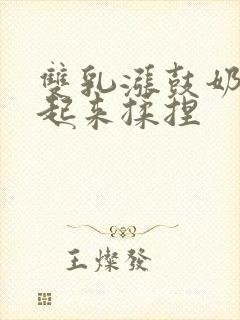 雙乳漲鼓奶
起来揉捏
王燦發